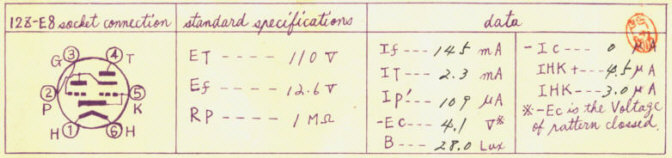 128-E8 socket connection
G 3 4 T
P 2 5 K
H 1 6 H
standard specifications
ET --- 110 V
Ef --- 12.6 V
RP --- 1 MΩ
data
If --- 14.5 mA
IT --- 2.3 mA
IP' --- 109 μA
-EC --- 4.1 V※
B --- 28.0 Lux
-Ic --- 0 μA
IHK+ --- 4.5 μA
IHK- --- 3.0 μA
※-Ec is the Voltage
of pattern clossed.